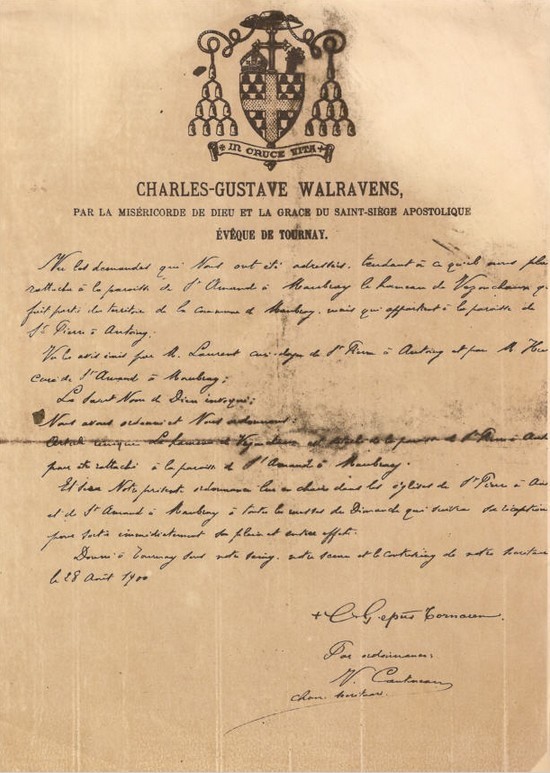 IN CRUCE VITA
CHARLES-GUSTAVE WALRAVENS,
PAR LA MISÉRICORDE DE DIEU ET LA GRACE DU SAINT-SIÈGE APOSTOLIQUE
ÉVÊQUE DE TOURNAY.
Vu les demandes qui Nous ont été adressées, tendant à ce qu'il nous plu
rattacher à la paroisse de St Amand à Maubray le hameau de
fait partie du territoire de la commune de Maubray, mais qui appartient à la paroisse de
St Pierre à Antoing
Vu les avis émis par M. Laurent curé-doyen de St Pierre à Antoing et par M
curé de St Amand à Maubray;
Le Saint Nom de Dieu invoqué;
Nous avons ordonné et Nous ordonnons:
Article unique Le hameau de est de la paroisse de St Pierre à Ant
pour être rattaché à la paroisse de St Amand à Maubray.
Et sera Notre présente ordonnance lue en chaire dans les églises de St Pierre à An
et de St Amand à Maubray à toutes les messes du Dimanche qui suivra sa réception
pour sortir immédiatement son plein et entier effet.
Donné à Tournay sous notre seing, notre sceau et le contreseing de notre Secrétaire
le 28 Août 1900
+ C. G. epus Tornacen.
Par ordonnance:
V. Cantineau
chan. secrétaire